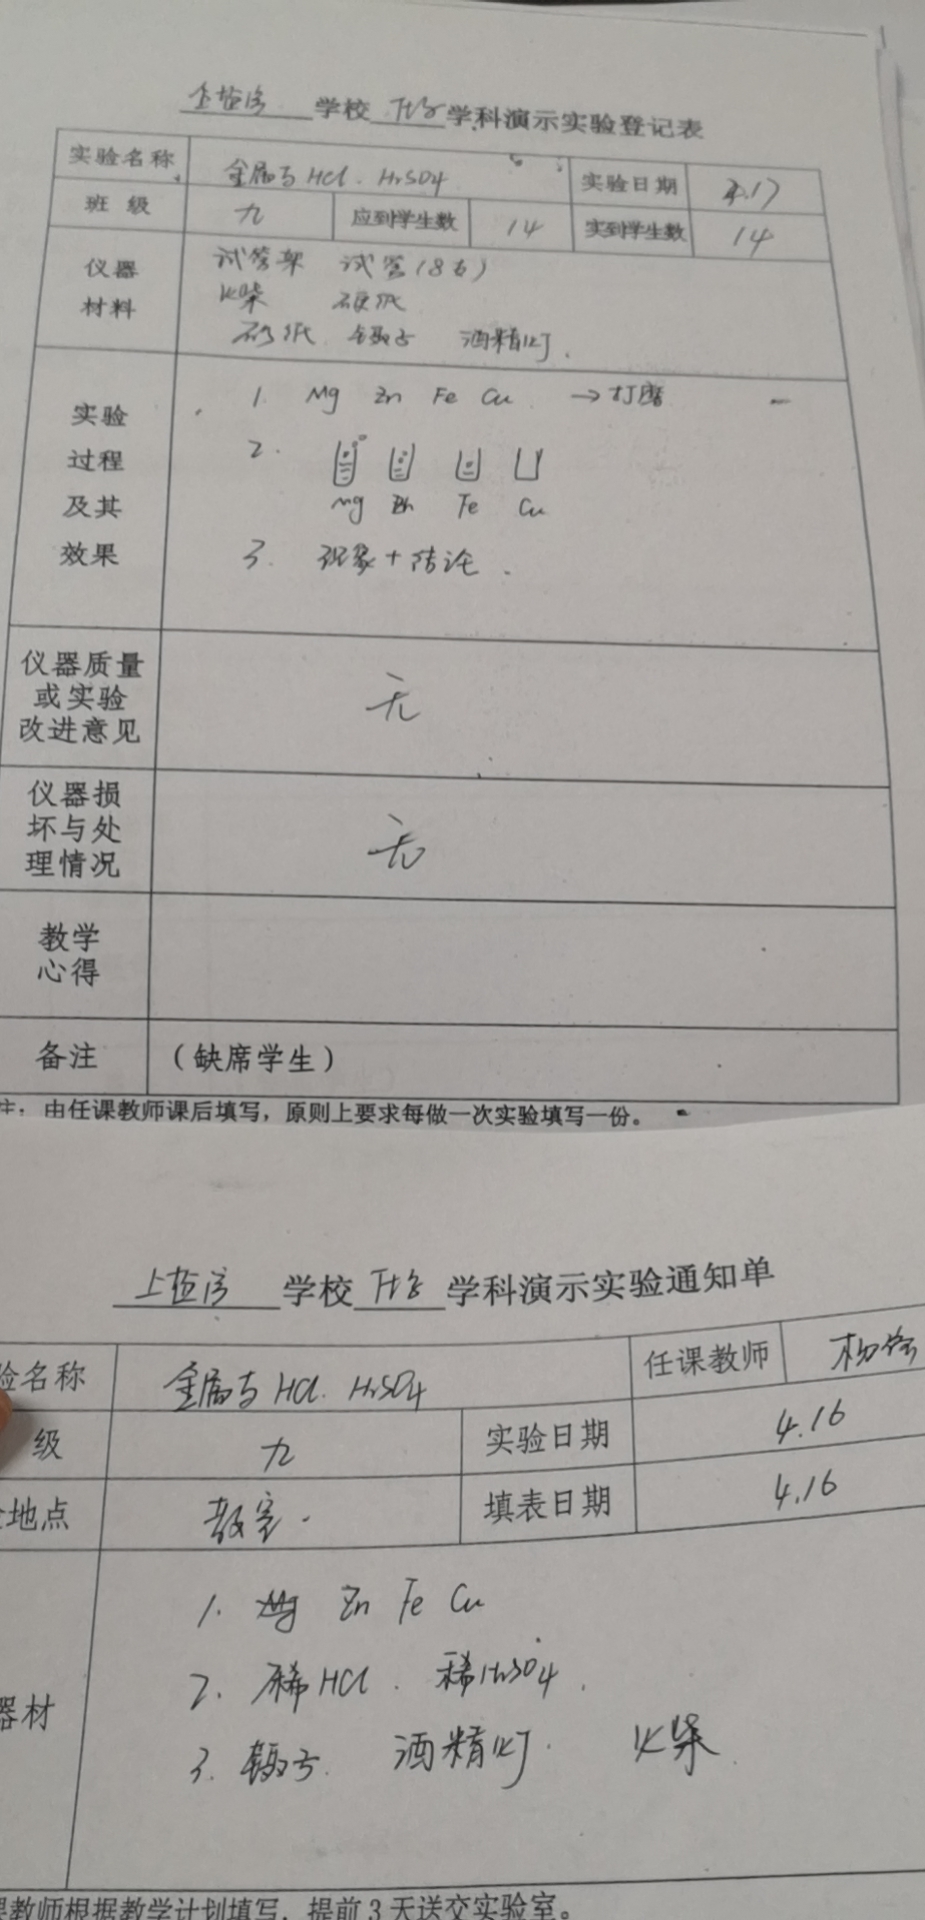 学校 化学 学科演示实验登记表
实验名称 金属与HCl. H₂SO₄ 实验日期 4.17
班 级 九 应到学生数 14 实到学生数 14
仪器材料 试管架 试管(8支)
火柴 硬纸
砂纸 镊子 酒精灯.
实验过程及其效果
1. Mg Zn Fe Cu → 打磨
2.
Mg Zn Fe Cu
3. 现象+结论.
仪器质量或实验改进意见 无
仪器损坏与处理情况 无
教学心得
备注 (缺席学生)
注:由任课教师课后填写,原则上要求每做一次实验填写一份。
学校 化学 学科演示实验通知单
验名称 金属与HCl. H₂SO₄ 任课教师 杨
级 九 实验日期 4.16
地点 教室. 填表日期 4.16
器材
1. Mg Zn Fe Cu
2. 稀HCl. 稀H₂SO₄.
3. 镊子. 酒精灯. 火柴.
课教师根据教学计划填写,提前3天送交实验室。